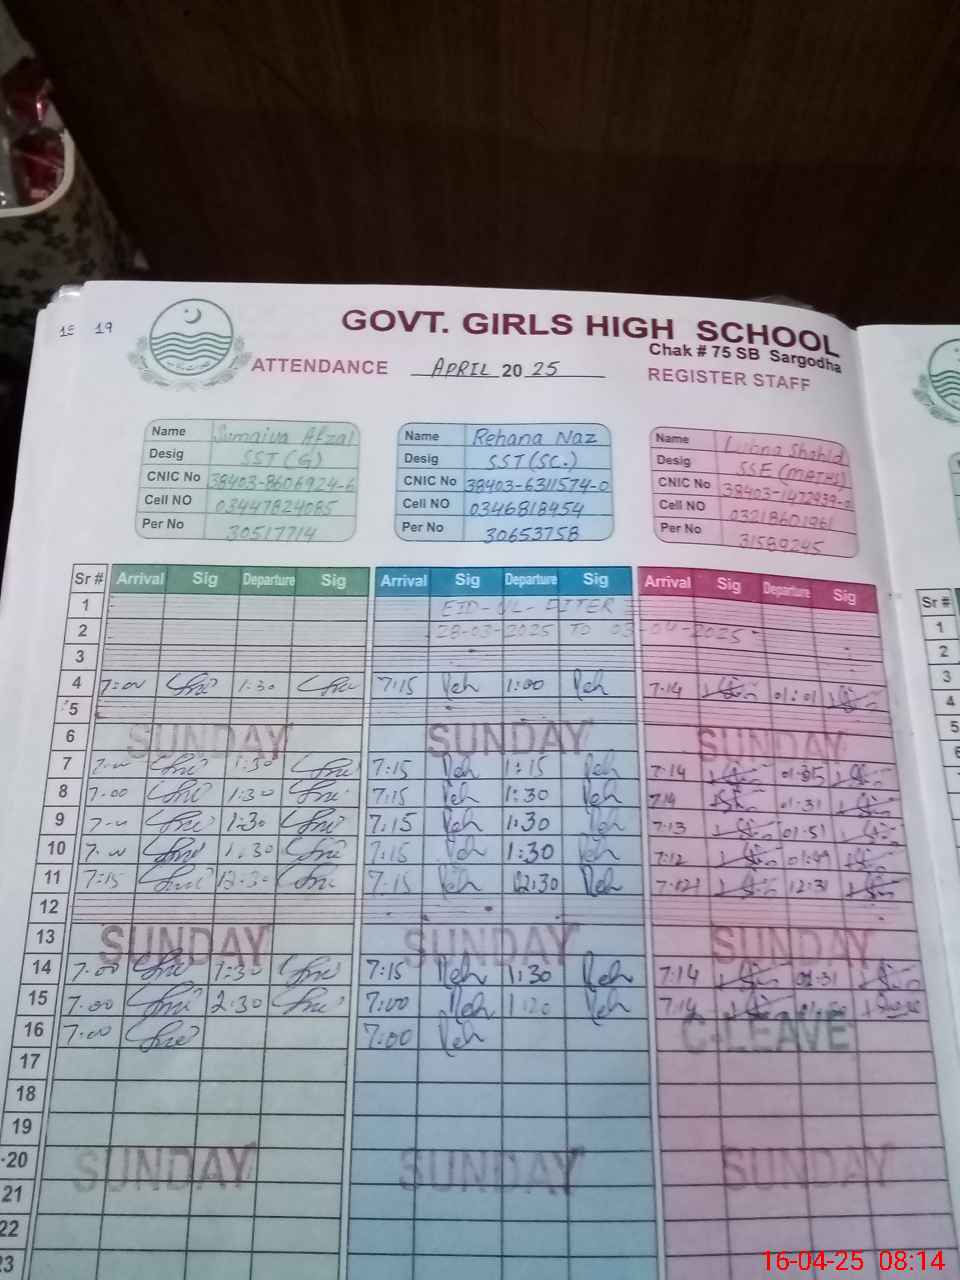 19
GOVT. GIRLS HIGH SCHOOL
Chak # 75 SB Sargodha
ATTENDANCE APRIL 20 25 REGISTER STAFF
Name Sumaiya Afzal Name Rehana Naz Name Lubna Shahid
Desig SST (G) Desig SST (SC.) Desig SSE (MATHS)
CNIC No 38403-8606924-6 CNIC No 38403-6311574-0 CNIC No
Cell NO 03447824085 Cell NO 0346818454 Cell NO 03218601961
Per No 30517714 Per No 30653758 Per No 31589245
Sr # Arrival Sig Departure Sig Arrival Sig Departure Sig Arrival Sig Departure Sig Sr #
1 EID-UL-FITER 1
2 28-03-2025 TO 03-04-2025 2
3 3
4 7:00 1:30 7:15 Reh 1:00 Reh 7:14 01:01 4
5 5
6 SUNDAY SUNDAY SUNDAY 6
7 1:30 7:15 Reh 1:15 Reh 7:14
8 7:00 1:30 7:15 Reh 1:30 Reh 7:14 01:31
9 1:30 7:15 Reh 1:30 Reh 7:13 01:51
10 1:30 7:15 Reh 1:30 Reh 7:12
11 7:15 12:30 7:15 Reh 12:30 Reh 12:31
12
13 SUNDAY SUNDAY SUNDAY
14 7:00 1:30 7:15 Reh 1:30 Reh 7:14
15 7:00 2:30 7:00 Reh 1:20 Reh 7:14
16 7:00 7:00 Reh C-LEAVE
17
18
19
20 SUNDAY SUNDAY SUNDAY
21
22
23
16-04-25 08:14